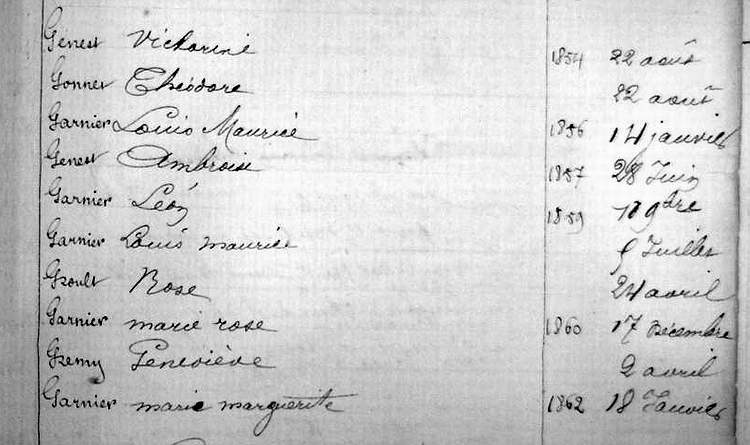 Genest Victorine 1854 22 août
Gonnet Théodore 22 août
Garnier Louis Maurice 1856 14 janvier
Genest Ambroise 1857 28 Juin
Garnier Léon 1859 9bre
Garnier Louis maurice Juillet
Groult Rose 24 avril
Garnier marie rose 1860 17 Décembre
Gremy Geneviève 2 avril
Garnier marie marguerite 1862 18 Janvier